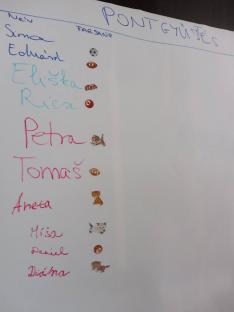 PONTGYŰJTÉS
NÉV
Simca
Eduárd
Eliška
Rica
Petra
Tomaš
Aneta
Míša
Daniel